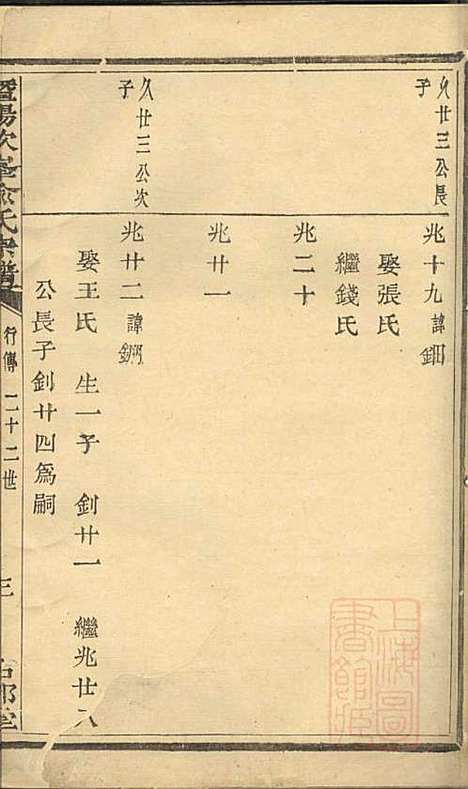 久廿三公長
子
兆十九 諱鈿
娶張氏
繼錢氏
兆二十
兆廿一
久廿三公次
子
兆廿二 諱鋼
娶王氏 生一子 釗廿一 繼兆廿八
公長子釗廿四為嗣
暨陽次峯俞氏宗譜
行傳 二十二世
三
上海圖
書館藏